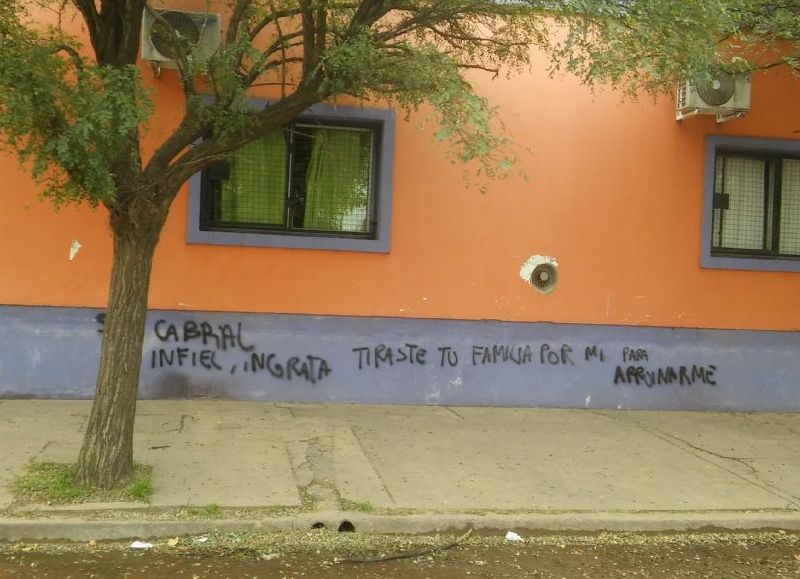 CABRAL
INFIEL, INGRATA TIRASTE TU FAMILIA POR MI PARA
ARRUINARME